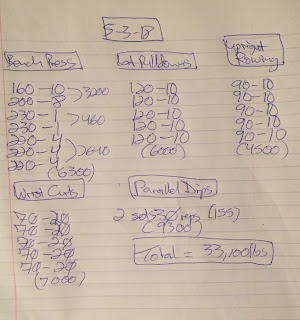 5-3-18
Bench Press
160-10
200-8 >3200
230-1
230-1 >460
220-4
220-4 >2640
220-4
(6300)
Lat Pulldowns
120-10
120-10
120-10
120-10
120-10
(6000)
Upright
Rowing
90-10
90-10
90-10
90-10
90-10
(4500)
Wrist Curls
70-20
70-20
70-20
70-20
70-20
(7000)
Parallel Dips
2 sets 30 reps (155)
(9300)
Total = 33,100 lbs